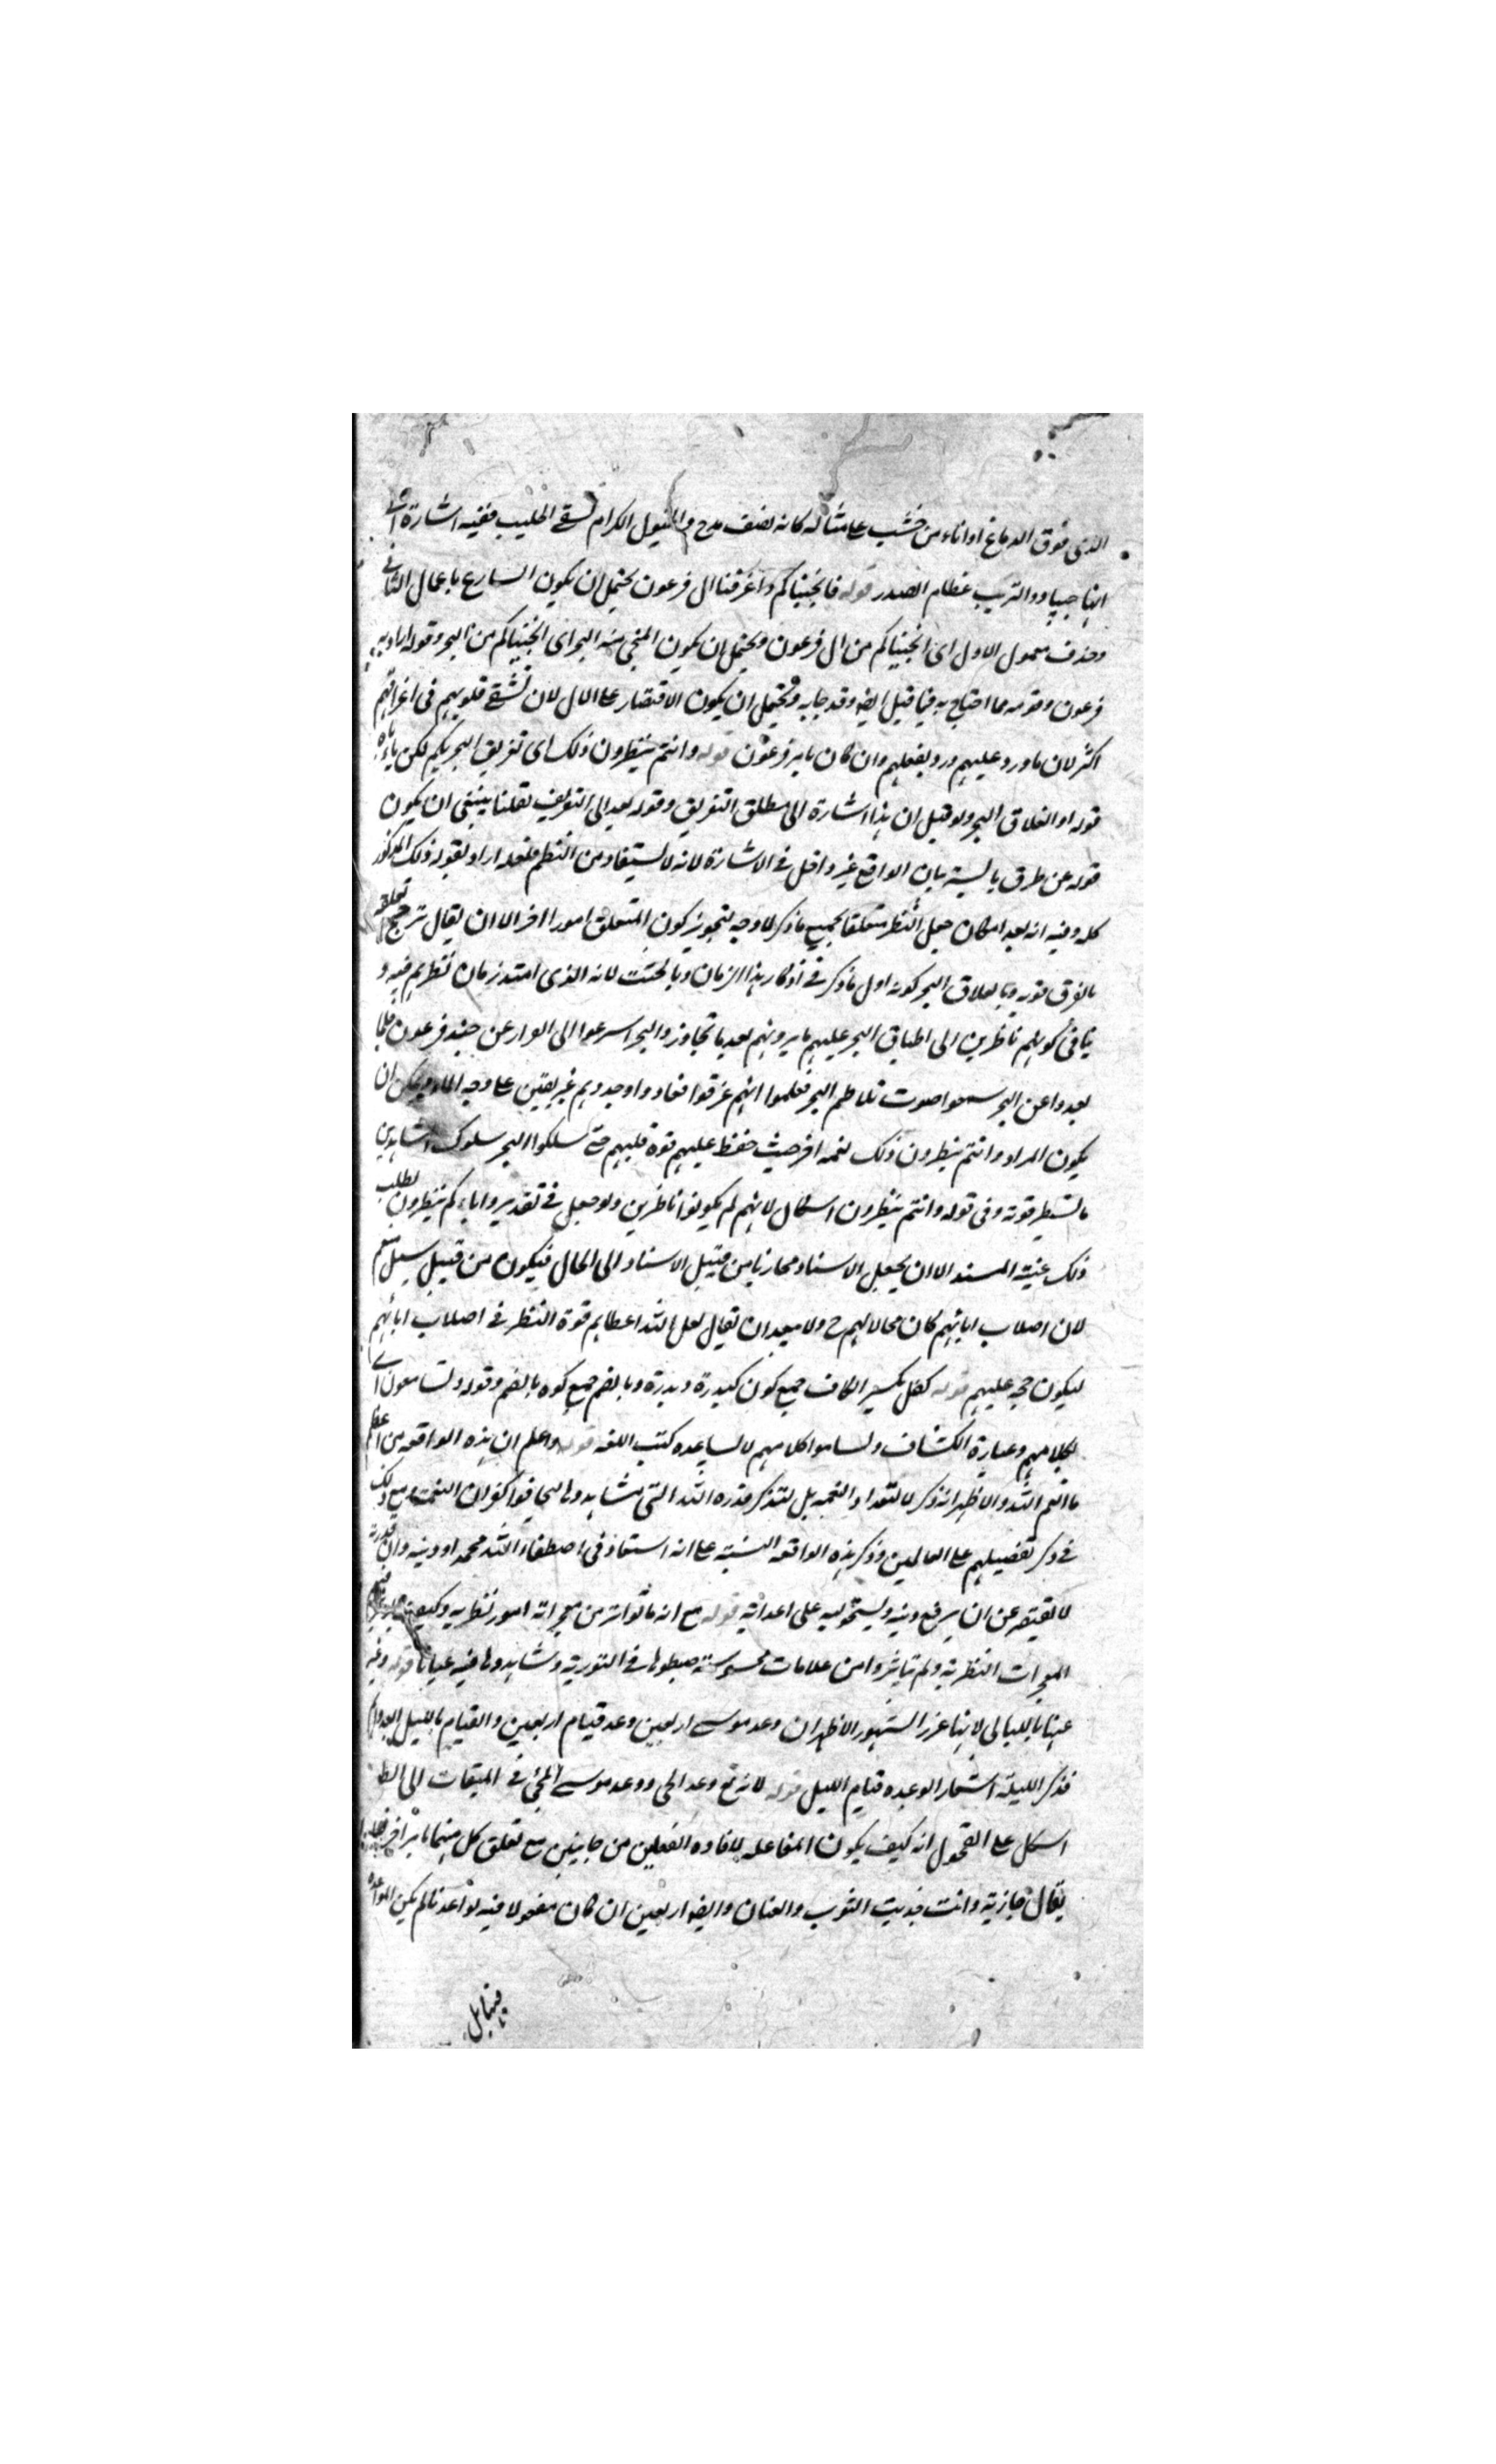 الذى فوق الدماغ او اناء من خشب على مثاله كانه نصف قدح والخيول الكرام تسقى الحليب ففيه اشارة الى
انها جياد والتريب عظام الصدر قوله فانجيناكم واغرقنا ال فرعون يحتمل ان يكون التنازع باعمال الثانى
وحذف معمول الاول اى انجيناكم من ال فرعون ويحتمل ان يكون المنجى منه البحر اى انجيناكم من البحر وقوله اراد به
فرعون وقومه مما احتاج به فيما قبل ايضا وقد جا به ويحتمل ان يكون الاقتصار على الال لان تشفى قلوبهم فى اغراقهم
اكثر لان ما ورد عليهم ورد بفعلهم وان كان بامر فرعون قوله وانتم تنظرون ذلك اى تفريق البحر بكم لكن ياباه
قوله او انفلاق البحر ولو قيل ان هذا اشارة الى مطلق التفريق وقوله بعد الى التفريق لقلنا ينبغى ان يكون
قوله عن طرق يابسة بيان الواقع غير داخل فى الاشارة لانه لا يستفاد من النظم فلعله اراد بقوله ذلك المذكور
كله وفيه انه بعد امكان جعل النظر متعلقا بجميع ما ذكر لا وجه لتجويز كون المتعلق امورا اخر الا ان يقال ترجح تعلقه
بالغرق قوته وبانفلاق البحر كونه اول ما ذكر فى اذكار هذا الزمان وبالجثث لانه الذى امتد زمان نظرهم فيه و
ينافى كونهم ناظرين الى اطباق البحر عليهم ما يروى انهم بعد ما تجاوزوا البحر اسرعوا الى الفرار عن جند فرعون فلما
بعدوا عن البحر سمعوا صوت تلاطم البحر فعلموا انهم غرقوا فعادوا وجدوهم غريقين على وجه الماء ويمكن ان
يكون المراد وانتم تنظرون ذلك نعمة اخر حيث حفظ عليهم قوة قلبهم حتى سلكوا البحر سلوك المشاهدين
ما يستطرقونه وفى قوله وانتم تنظرون اشكال لانهم لم يكونوا ناظرين ولو جعل فى تقدير واباءكم ينظرون لطلب
ذلك غيبة المسند الا ان يجعل الاسناد مجازيا من قبيل الاسناد الى المحال فيكون من قبيل سيل مفعم
لان اصلاب ابائهم كان محالا لهم ح ولا يبعد ان يقال لعل الله اعطاهم قوة النظر فى اصلاب ابائهم
ليكون حجة عليهم قوله كفل بكسر الكاف جمع كون كبدرة وبدرة وبالضم جمع كوه بالضم وقوله وتسامعون اى
لكلامهم وعبارة الكشاف وتسامعوا كلامهم لا يساعده كتب اللغه قوله واعلم ان هذه الواقعه من اعظم
ما انعم الله والاظهر انه ذكر لا لتعداد النعمة بل لتذكر قدرة الله التى شاهدوها ليخافوا كفران النعمت ومع ذلك
فى ذكر تفضيلهم على العالمين وذكر هذه الواقعه التنبيه على انه استفاد فى اصطفاء الله محمدا ودينه وان قدرته
لا تقتصر عن ان يرفع دينه ويستحوليه على اعدائه قوله مع انه ما تواتر من معجزاته امور نظرية وكيف
المعجزات النظرية ولم يتاثروا من علامات محسوسة ضبطوها فى التورية وشاهدوها فيه عيانا قوله وعبر
عنها بالليالى لانها غرر الشهور الاظهر ان وعد موسى اربعين وعد قيام اربعين والقيام بالليل
فذكر الليلة اشعار الوعده قيام الليل قوله لانه تع وعد الوحى ووعد موسى المجئ فى الميقات الى الطور
اشكل على الفحول انه كيف يكون المفاعله لافادة الفعلين من جانبين مع تعلق كل منهما بامر اخر فلا
يقال جازيته وانت جذبت الثوب والعنان وايضا اربعين ان كان مفعولا فيه لواعدنا لم يكن المواعده
فيتأمل